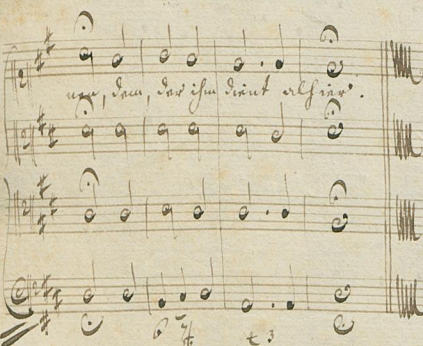 nen, dem, der ihm dient alhier.
6 7
t 3